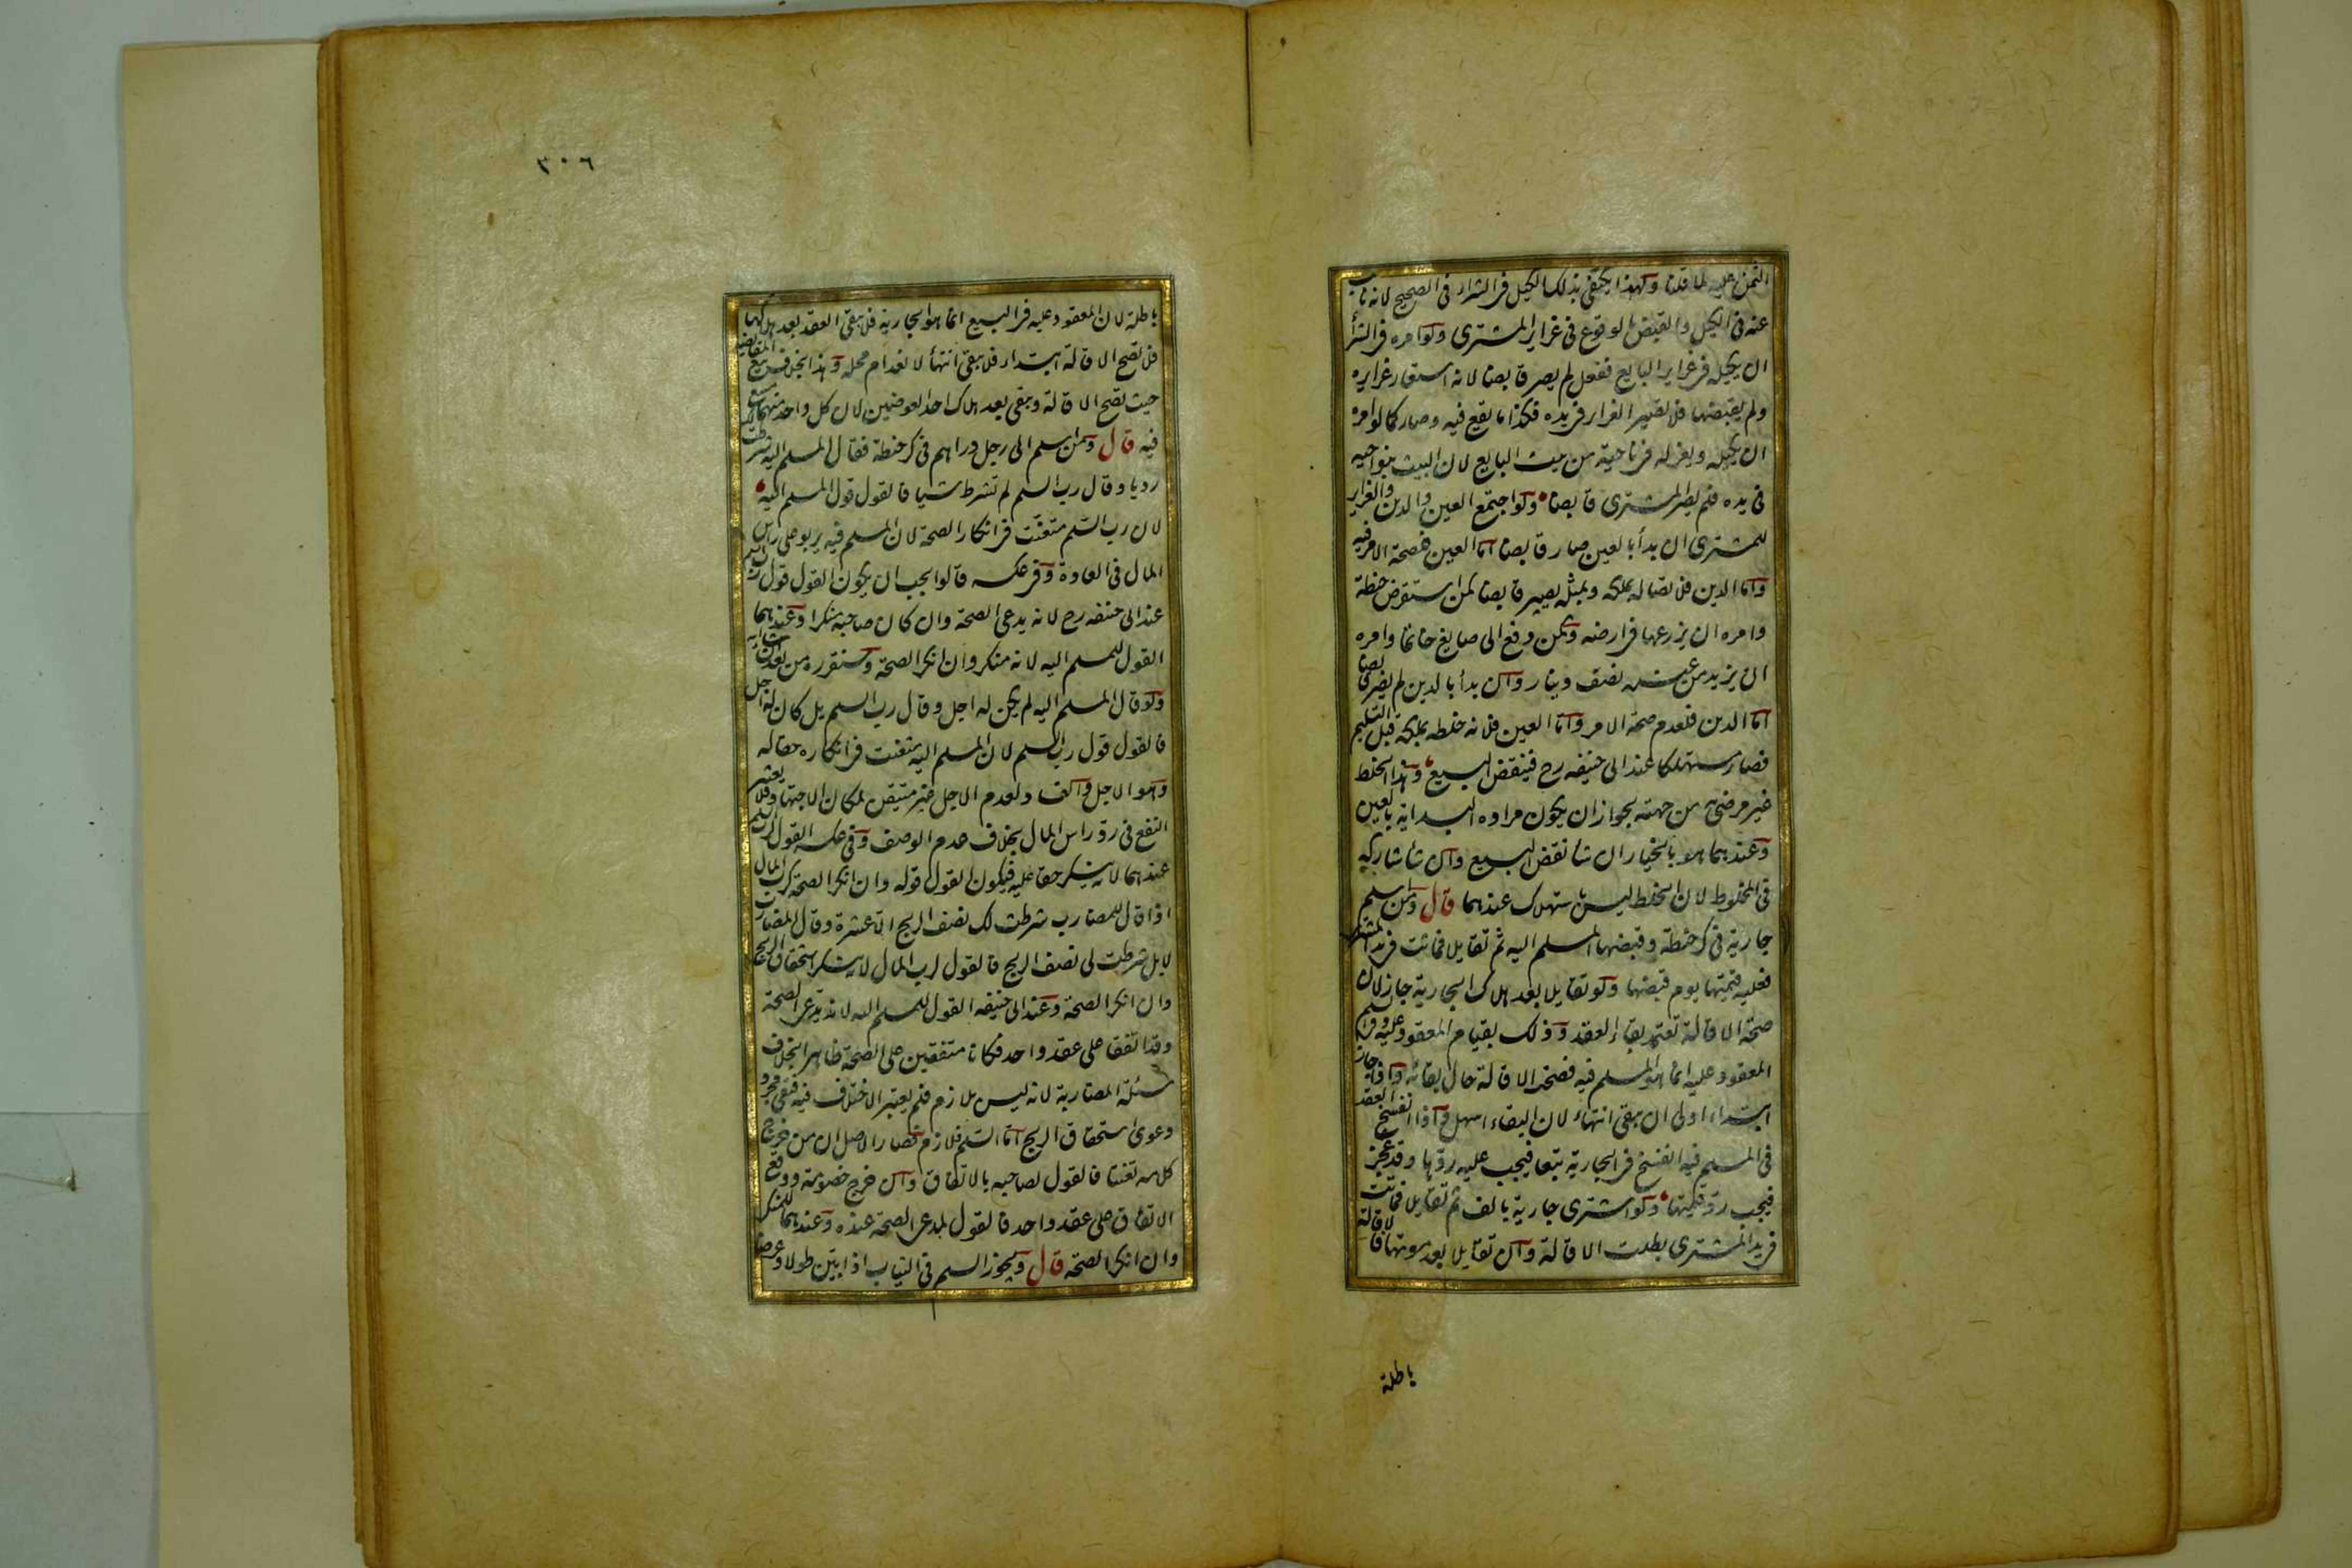 الثمن عليه لما قلنا ولهذا يكتفى بذلك الكيل فى الشراء فى الصحيح لانه نايب
عنه فى الكيل والقبض بالوقوع فى غراير المشترى ولو امره فى الشرأ
ان يكيله فى غراير البايع ففعل لم يصر قابضا لانه استعار غرايره
ولم يقبضها فلا تصير الغراير فى يده فكذا ما يقع فيه وصار كما لو امره
ان يكيله ويعزله فى ناحية من بيت البايع لان البيت بنواحيه
فى يده فلم يصر المشترى قابضا ولو اجتمع العين والدين والغراير
للمشترى ان بدأ بالعين صار قابضا اما العين فلصحة الامر فيه
واما الدين فلاتصاله بملكه وبمثله يصير قابضا كمن استقرض حنطة
وامره ان يزرعها فى ارضه وكمن دفع الى صايغ خاتما وامره
ان يزيد من عنده نصف دينار وان بدأ بالدين لم يصر قابضا
اما الدين فلعدم صحة الامر واما العين فلانه خلطه بملكه قبل التسليم
فصار مستهلكا عند ابى حنيفه رح فينقض البيع وهذا الخلط
غير مرضى من جهته لجواز ان يكون مراده البداية بالعين
وعندهما هو بالخيار ان شأ نقض البيع وان شأ شاركه
فى المخلوط لان الخلط ليس باستهلاك عندهما قال ومن اسلم
جارية فى كر حنطة وقبضها المسلم اليه ثم تقايلا فماتت فى يد المشترى
فعليه قيمتها يوم قبضها ولو تقايلا بعد هلاك الجارية جاز لان
صحة الاقالة تعتمد بقاء العقد وذلك بقيام المعقود عليه وفى السلم
المعقود عليه انما هو المسلم فيه فصحت الاقالة حال بقائه واذا جاز
ابتداء اولى ان يبقى انتهاء لان البقاء اسهل واذا انفسخ العقد
فى المسلم فيه انفسخ فى الجارية تبعا فيجب عليه ردها وقد عجز
فيجب رد قيمتها ولو اشترى جارية بالف ثم تقايلا فماتت
فى يد المشترى بطلت الاقالة وان تقايلا بعد موتها فالاقالة
باطلة
٣٠٦
باطلة لان المعقود عليه فى البيع انما هو الجارية فلا يبقى العقد بعد هلاكها
فلا تصح الاقالة ابتداء فلا يبقى انتهأ لانعدام محله وهذا بخلاف بيع المقايضة
حيث تصح الاقالة وتبقى بعد هلاك احد العوضين لان كل واحد منهما مبيع
فيه قال ومن اسلم الى رجل دراهم فى كر حنطة فقال المسلم اليه شرطت
رديا وقال رب السلم لم تشرط شيا فالقول قول المسلم اليه
لان رب السلم متعنت فى انكار الصحة لان المسلم فيه يربو على راس
المال فى العادة وفى عكسه قالوا يجب ان يكون القول قول رب السلم
عند ابى حنيفه رح لانه يدعى الصحة وان كان صاحبه منكرا وعندهما
القول للمسلم اليه لانه منكر وان انكر الصحة وسنقرره من بعد ان شاء الله
ولو قال المسلم اليه لم يكن له اجل وقال رب السلم بل كان له اجل
فالقول قول رب السلم لان المسلم اليه متعنت فى انكاره حقا له
وهو الاجل والفساد لعدم الاجل غير متيقن لمكان الاجتهاد فلا يعتبر
النفع فى رد راس المال بخلاف عدم الوصف وفى عكسه القول لرب السلم
عندهما لانه ينكر حقا عليه فيكون القول قوله وان انكر الصحة كرب المال
اذا قال للمضارب شرطت لك نصف الربح الا عشرة وقال المضارب
لا بل شرطت لى نصف الربح فالقول لرب المال لانه ينكر استحقاق الربح
وان انكر الصحة وعند ابى حنيفه القول للمسلم اليه لانه يدعى الصحة
وقد اتفقا على عقد واحد فكانا متفقين على الصحة ظاهرا بخلاف
مسئلة المضاربة لانه ليس بلازم فلم يعتبر الاختلاف فيه فبقى مجرد
دعوى استحقاق الربح اما السلم فلازم فصار الاصل ان من خرج
كلامه تعنتا فالقول لصاحبه بالاتفاق وان خرج خصومة ووقع
الاتفاق على عقد واحد فالقول لمدعى الصحة عنده وعندهما للمنكر
وان انكر الصحة قال ويجوز السلم فى الثياب اذا بين طولا وعرضا